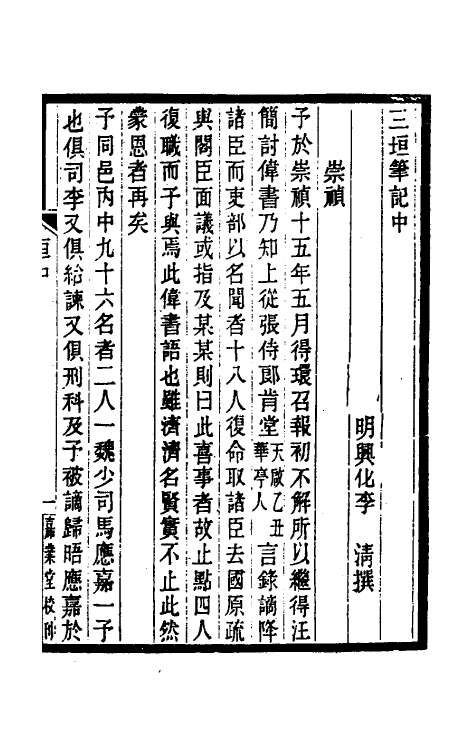 三垣筆記中
明興化李 清撰
崇禎
予於崇禎十五年五月得環召報初不解所以繼得汪
簡討偉書乃知上從張侍郎肯堂天啟乙丑華亭人言錄謫降
諸臣而吏部以名聞者十八人復命取諸臣去國原疏
與閣臣面議或指及某某則曰此喜事者故止點四人
復職而予與焉此偉書語也雖濟濟名賢實不止此然
蒙恩者再矣
予同邑丙中九十六名者二人一魏少司馬應嘉一予
也俱司李又俱給諫又俱刑科及予被謫歸晤應嘉於
垣中
一
嘉業堂校刊